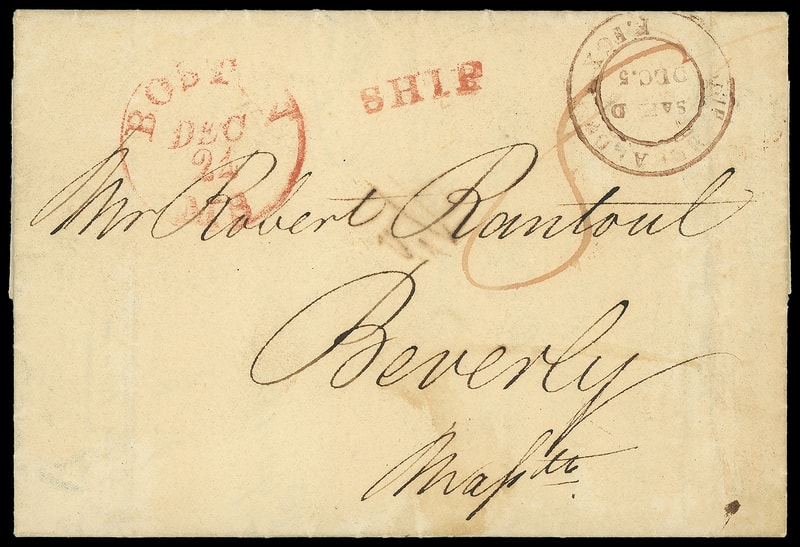 BOSTON
DEC
24
MS
SHIP
F.FCK
SAT. D
DEC.5
Mr Robert Rantoul
Beverly
Masstts.